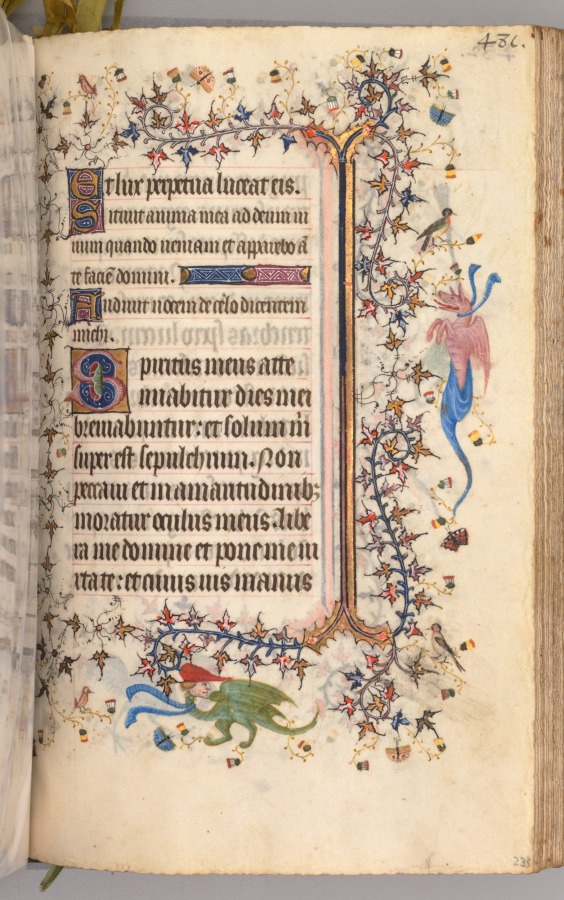 436.
Et lux perpetua luceat eis.
Sitiuit anima mea ad deum ui
uum quando ueniam et apparebo ā
te faciē domini.
Audiui uocem de celo dicentem
michi.
Spiritus meus atte
nuabitur dies mei
breuiabuntur: et solum m̄
super est sepulchrum. Non
peccaui et in amaritudinib;
moratur oculus meus. Libe
ra me domine et pone me iu
xta te: et cuius uis manus
235